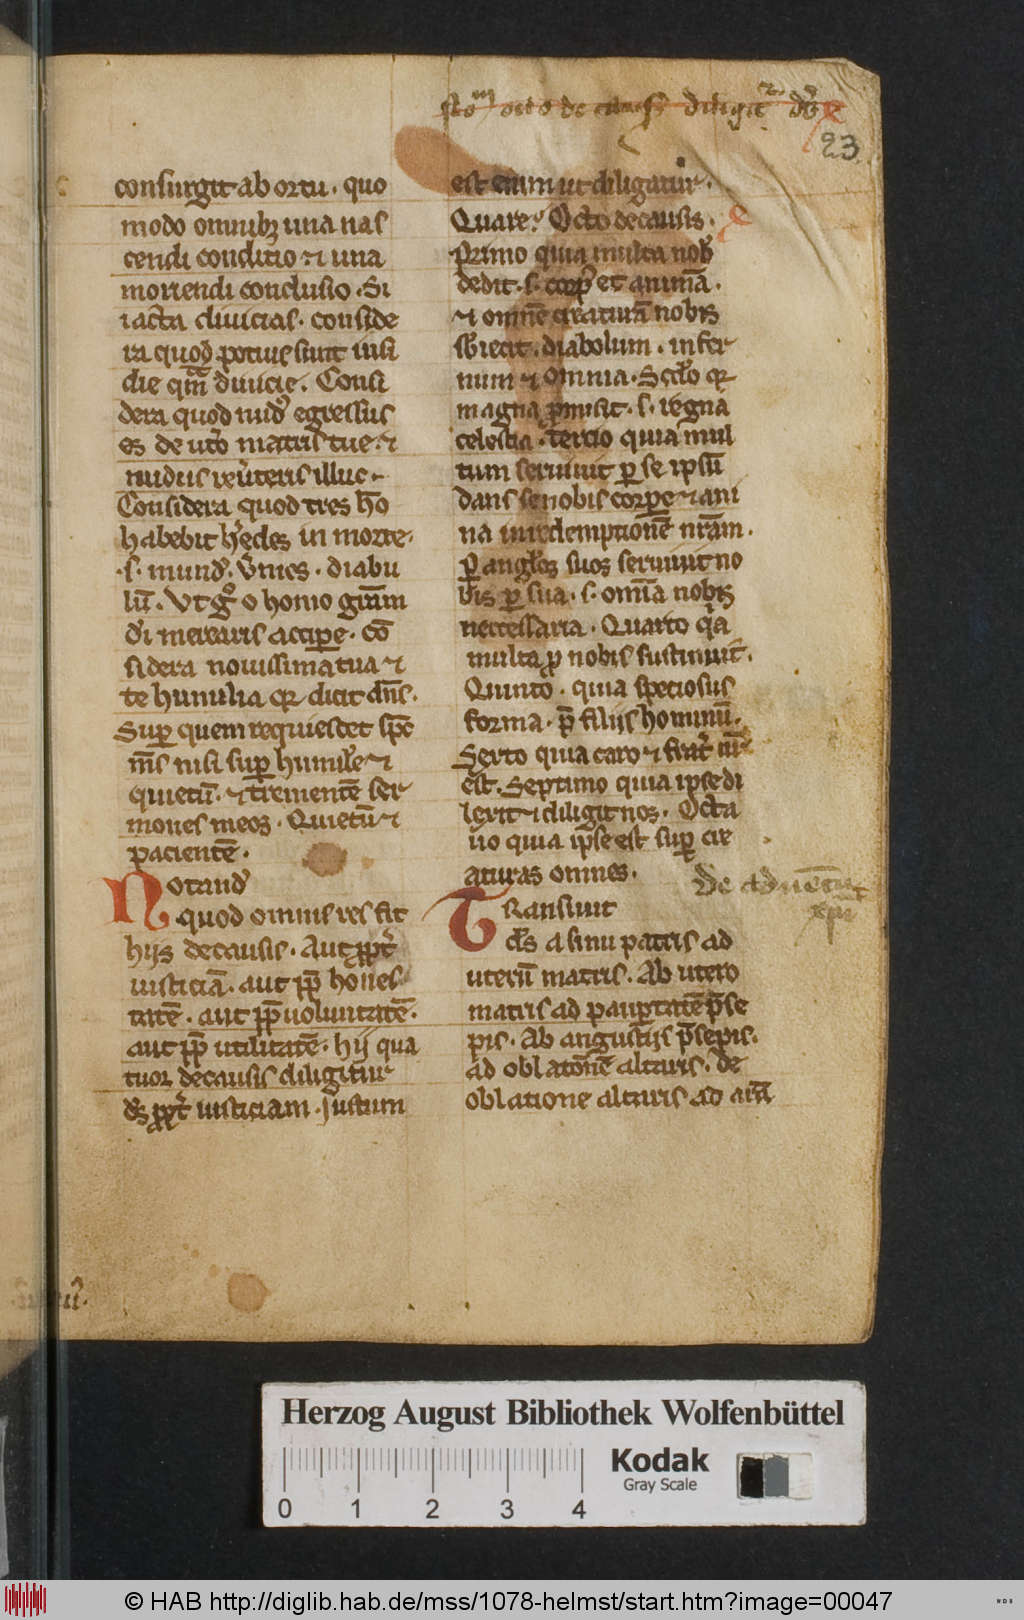 23
consurgit ab ortu . quo
modo omnibꝫ una nas
cendi conditio ⁊ una
moriendi conclusio . Si
iacta diuicias . conside
ra quod potius sint insi
die qͣm diuicie . Consi
dera quod nudꝰ egressus
es de utͦo matris tue . ⁊
nudus reu̾teris illuc .
Considera quod tres ho̅
habebit he̾des in morte .
.s. mundꝰ . v̾mes . diabu
lu̅ . Ut gͦ o homo gra̅m
dei merearis accipere . co̅
sidera nouissima tua ⁊
te humilia qꝛ dicit dn̅s .
Super quem requiescet spc̅
me̅s nisi sup̲ humile̅ ⁊
quietu̅ . ⁊ tremente̅ ser
mones meos . Quietu̅ ⁊
paciente̅ .
Notand̾
quod omnis res fit
hijs de causis . Aut ꝓpt̾
iusticia̅ . aut ꝓp̅ hones
tate̅ . aut ꝓp̅ uoluntate̅ .
aut ꝓp̅ utilitate̅ . hij qua
tuor de causis diligitur
ds̅ ꝓpt̾ iusticiam . Justum
octo de causis diligit̾
est enim ut diligatur .
Quare . Octo de causis .
Primo quia multa nob̾
dedit .s. corpꝰ et anima̅ .
⁊ omne̅ creatura̅ nobis
sb̾iecit . diabolum . infer
num ⁊ omnia . Scd̅o qꝛ
magna ꝓmisit .s. regna
celestia . Tercio quia mul
tum seruiuit per se ipsu̅
dans se nobis corpore ⁊ ani
ma in redemptione̅ nr̅am .
Per angl̅os suos seruiuit no
bis per sua .s. omi̅a nobis
necessaria . Quarto qͥa
multa ꝓ nobis sustinuit .
Quinto . quia speciosus
forma . p̅ filijs hominu̅ .
Serto quia caro ⁊ frat̾ nr̅
est . Septimo quia ipse di
lexit ⁊ diligit nos . Octa
uo quia ipse est sup̲ cre
aturas omnes .
De aduentu
xp̅i
Transiuit
ds̅ a sinu patris ad
uteru̅ matris . Ab utero
matris ad paup̲tate̅ p̅se
pis . Ab angustijs p̅sepis .
ad oblatione̅ altaris . De
oblatione altaris ad ara̅
Herzog August Bibliothek Wolfenbüttel
Kodak
Gray Scale
0 1 2 3 4
© HAB http://diglib.hab.de/mss/1078-helmst/start.htm?image=00047